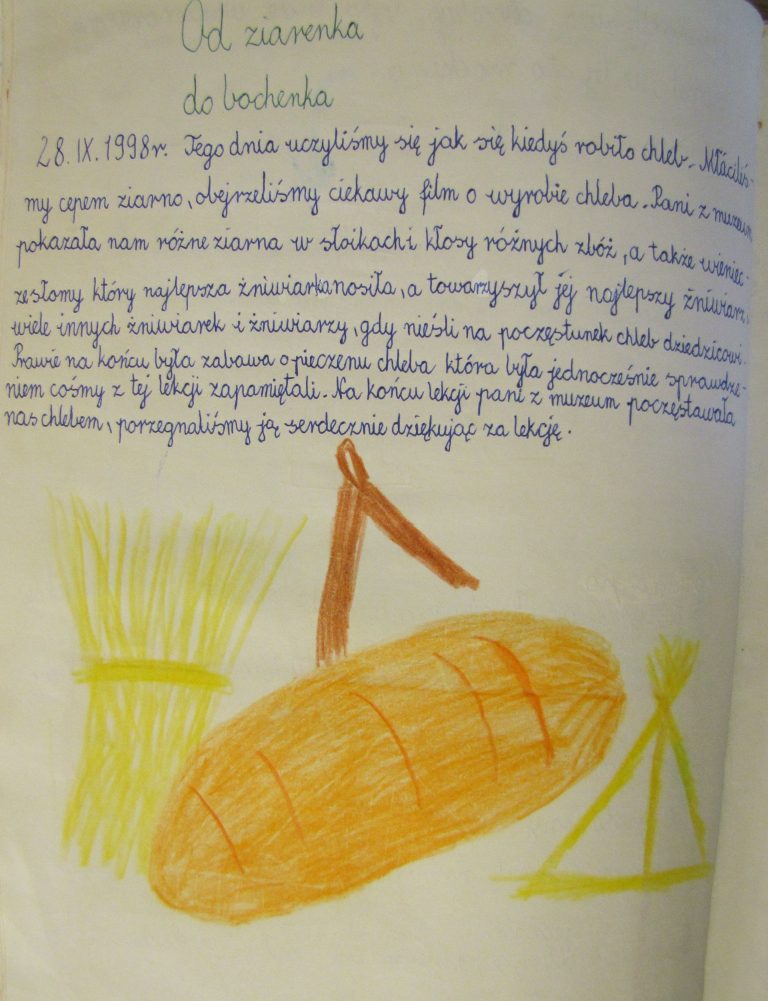 Od ziarenka
do bochenka
28.IX.1998r. Tego dnia uczyliśmy się jak się kiedyś robiło chleb. Młóciliś-
my cepem ziarno, obejrzeliśmy ciekawy film o wyrobie chleba. Pani z muzeum
pokazała nam różne ziarna w słoikach i kłosy różnych zbóż, a także wieniec
ze słomy który najlepsza żniwiarka nosiła, a towarzyszył jej najlepszy żniwiarz,
wiele innych żniwiarek i żniwiarzy, gdy nieśli na poczęstunek chleb dziedzicowi.
Prawie na końcu była zabawa o pieczenu chleba która była jednocześnie sprawdze-
niem cośmy z tej lekcji zapamiętali. Na końcu lekcji pani z muzeum poczęstawała
nas chlebem, porzegnaliśmy ją serdecznie dziękując za lekcję.